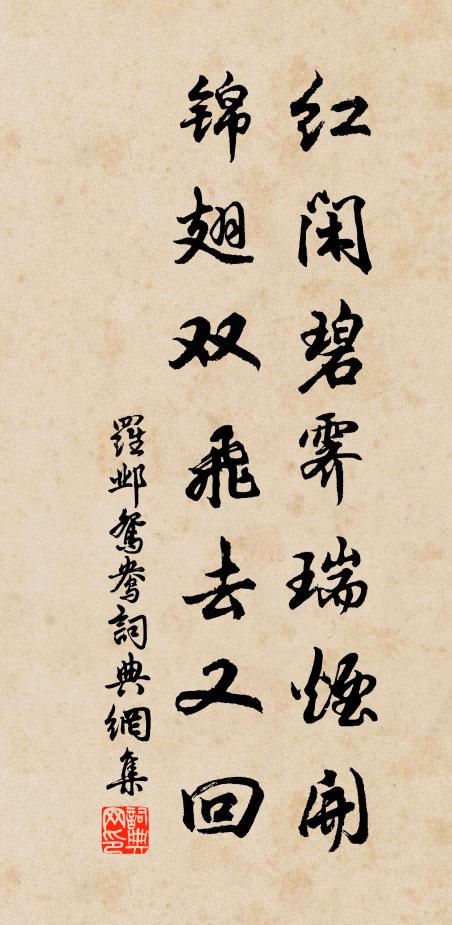 红闲碧霁瑞烟开
锦翅双飞去又回
羅邺鸳鸯詞典網集
詞典网印